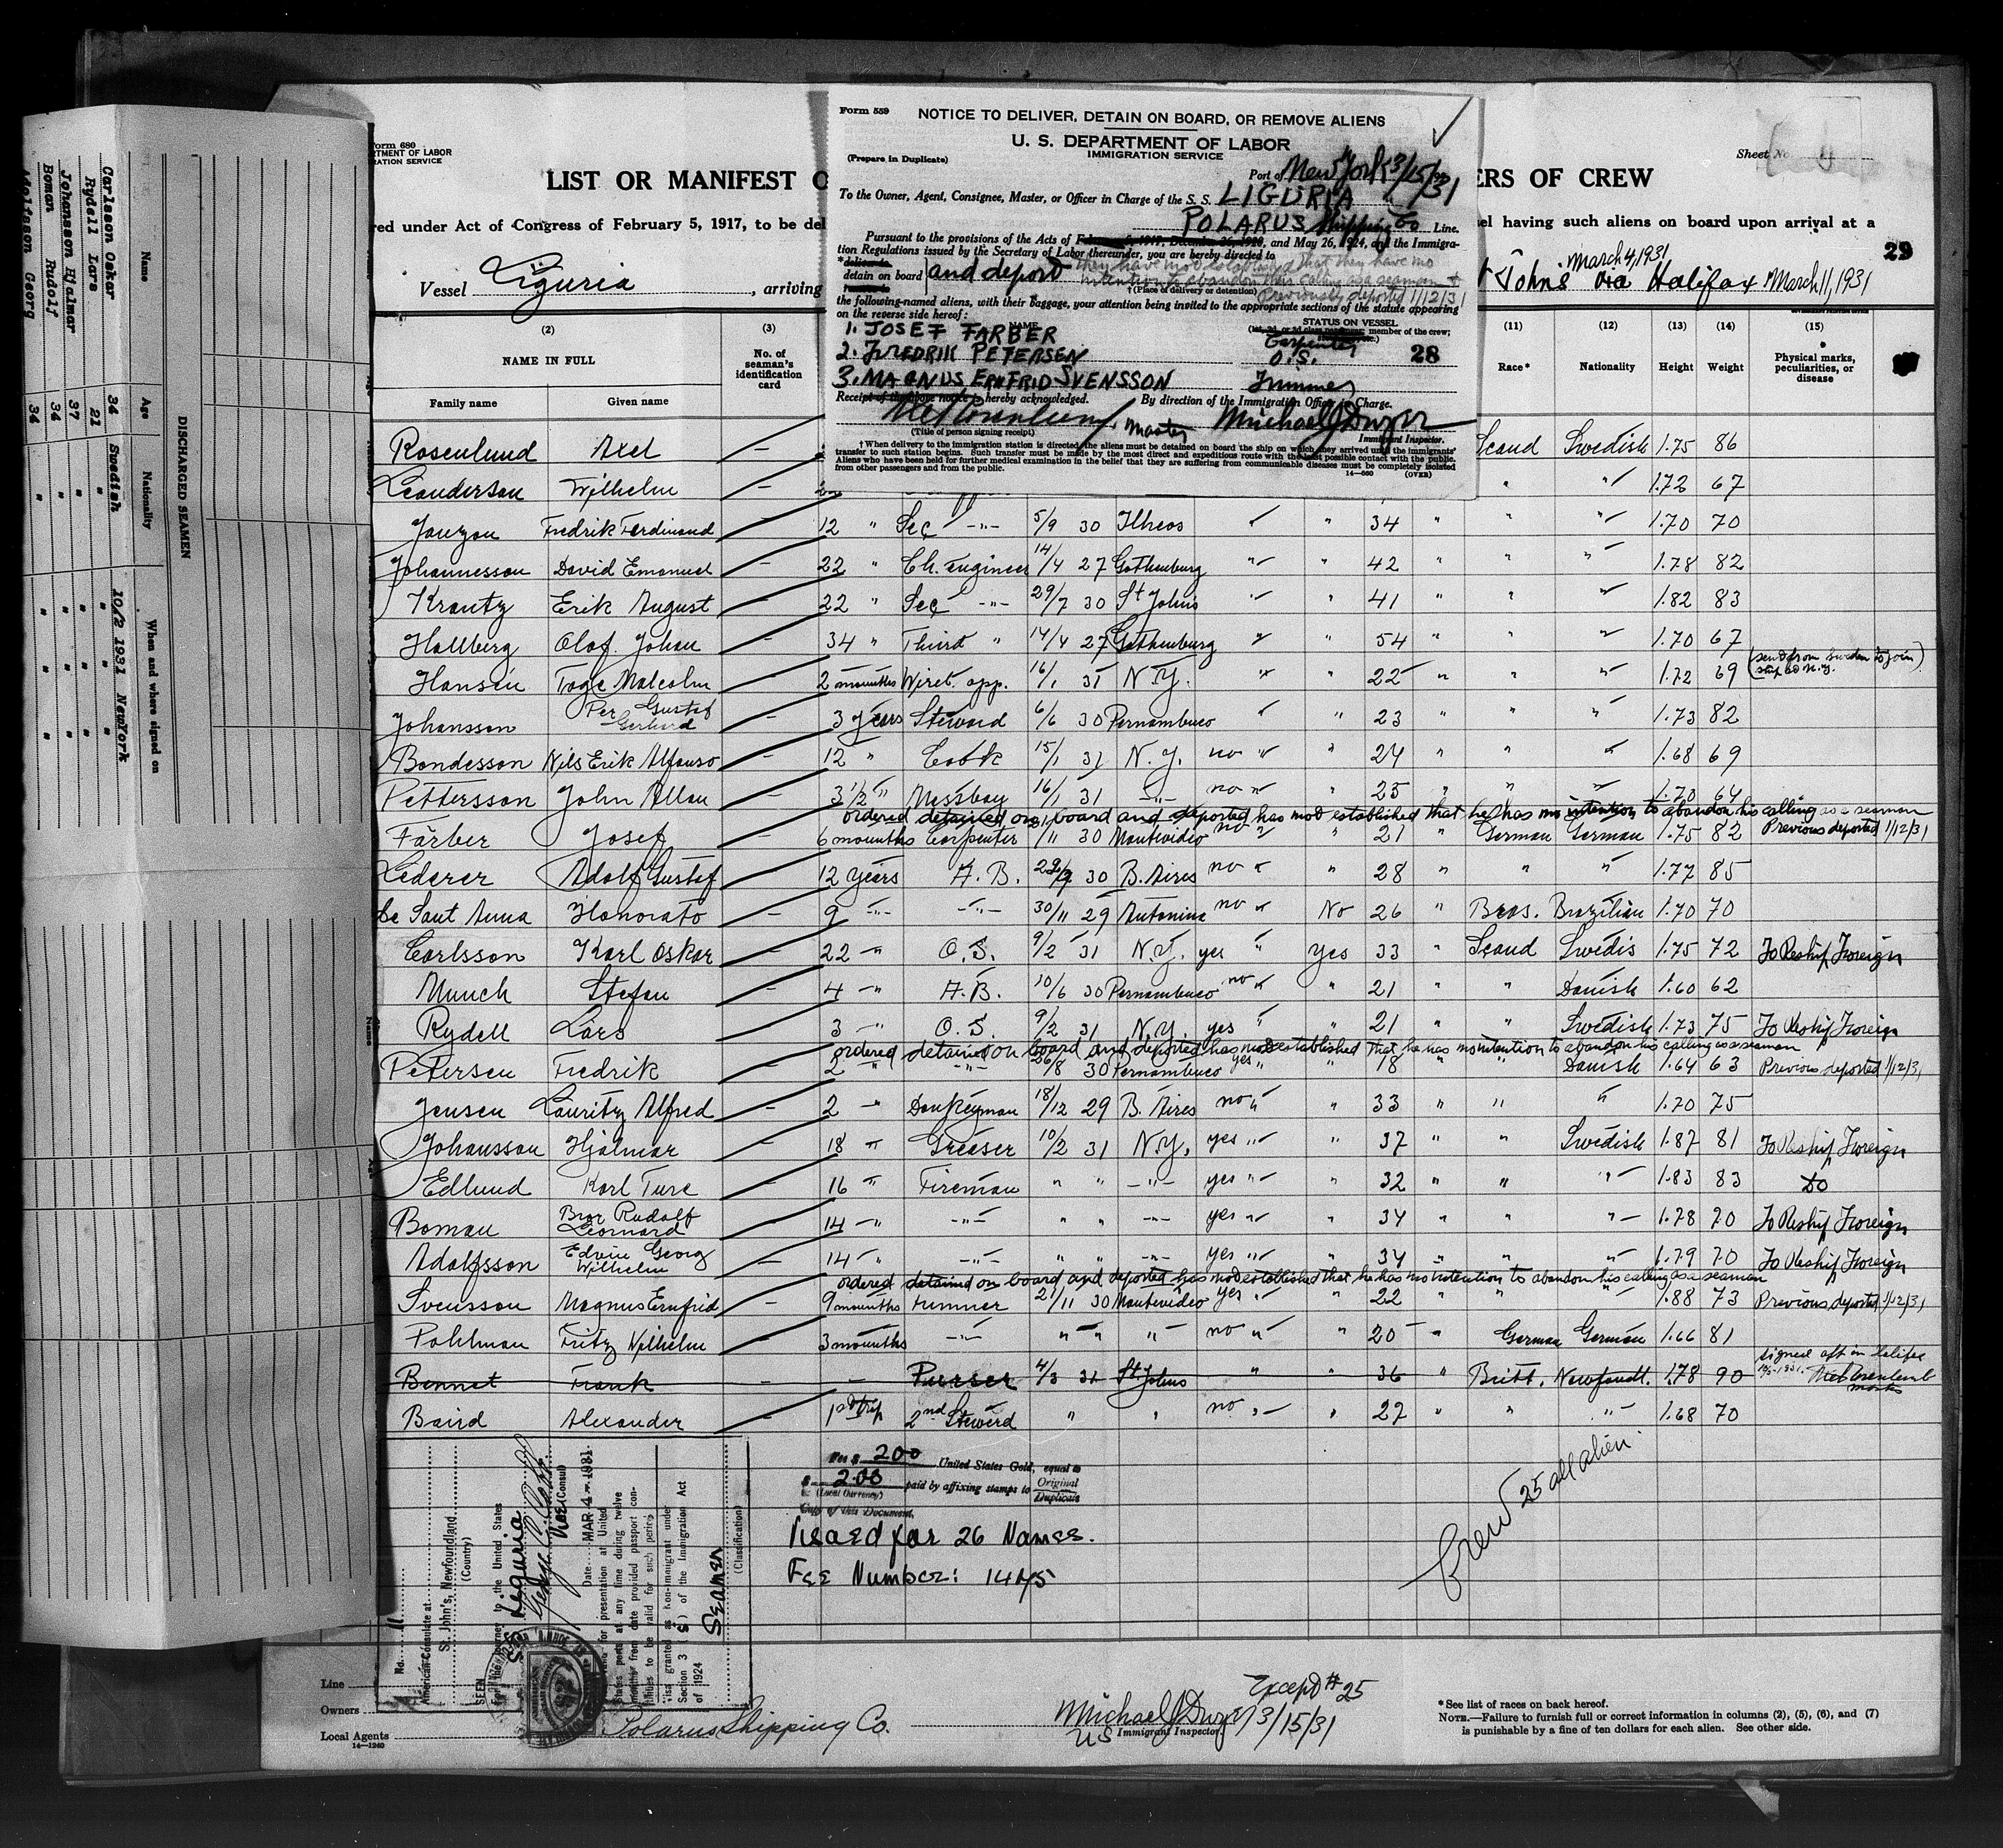 Form 680
RTMENT OF LABOR
RATION SERVICE
Sheet No.
LIST OR MANIFEST O
ERS OF CREW
red under Act of Congress of February 5, 1917, to be del
sel having such aliens on board upon arrival at a
29
Vessel Liguria , arriving
t Johns via Halifax March 11, 1931
March 4, 1931
Form 559
NOTICE TO DELIVER, DETAIN ON BOARD, OR REMOVE ALIENS
U. S. DEPARTMENT OF LABOR
IMMIGRATION SERVICE
(Prepare in Duplicate)
Port of New York 3/15/31
To the Owner, Agent, Consignee, Master, or Officer in Charge of the S. S. LIGURIA
POLARUS Shipping Co Line.
Pursuant to the provisions of the Acts of February 5, 1917, December 26, 1920, and May 26, 1924, and the Immigra-
tion Regulations issued by the Secretary of Labor thereunder, you are hereby directed to
detain on board and deport they have not established that they have no
intention to abandon their calling as a seaman +
(Place of delivery or detention) Previously deported 1/12/31
the following-named aliens, with their baggage, your attention being invited to the appropriate sections of the statute appearing
on the reverse side hereof:
NAME STATUS ON VESSEL
member of the crew;
1. JOSEF FARBER Carpenter
2. FREDRIK PETERSEN O.S. 28
3. MAGNUS ERNFRID SVENSSON Trimmer
Receipt of the above notice is hereby acknowledged. By direction of the Immigration Officer in Charge.
Master Michael J Dwyer
(Title of person signing receipt) Immigrant Inspector.
† When delivery to the immigration station is directed, the aliens must be detained on board the ship on which they arrived until the immigrants'
transfer to such station begins. Such transfer must be made by the most direct and expeditious route with the least possible contact with the public.
Aliens who have been held for further medical examination in the belief that they are suffering from communicable diseases must be completely isolated
from other passengers and from the public.
14—660 (OVER)
(2) (3) (11) (12) (13) (14) (15)
NAME IN FULL No. of seaman's identification card Race* Nationality Height Weight Physical marks, peculiarities, or disease
Family name Given name
Rosenlund Axel — Scand Swedish 1.75 86
Leanderson Wilhelm — " " 1.72 67
Jonzon Fredrik Ferdinand — 12 " Sec -"- 5/9 30 Ilheos " " 34 " " " 1.70 70
Johannesson David Emanuel — 22 " Ch. Engineer 14/4 27 Gothenburg " " 42 " " " 1.78 82
Krantz Erik August — 22 " Sec -"- 29/7 30 St Johns " " 41 " " " 1.82 83
Hallberg Olof Johan — 34 " Third " 14/4 27 Gothenburg " " 54 " " " 1.70 67
Hansen Tage Malcolm — 2 mounths Wirel. opp. 16/1 31 N.Y. " " 22 " " " 1.72 69 (sent from Sweden to join ship to N.Y.)
Johansson Per Gustaf Gerhard — 3 years Steward 6/6 30 Pernambuco " " 23 " " " 1.73 82
Bondesson Nils Erik Alfonso — 12 " Cook 15/1 31 N.Y. no " " 24 " " " 1.68 69
Pettersson John Allan — 3 1/2 " Messboy 16/1 31 -"- no " " 25 " " " 1.70 64
ordered detained on board and deported has not established that he has no intention to abandon his calling as a seaman
Färber Josef — 6 mounths Carpenter 21/11 30 Montevidio no " " 21 " German German 1.75 82 Previous deported 1/12/31
Lederer Adolf Gustaf 12 years A.B. 30 B. Aires no " " 28 " " " 1.77 85
de Sant Anna Honorato — 9 -"- -"- 30/11 29 Antonina no " No 26 " Bras. Brazilian 1.70 70
Carlsson Karl Oskar — 22 -"- O.S. 9/2 31 N.Y. yes " yes 33 " Scand Swedis 1.75 72 To Reship Foreign
Munch Stefan — 4 -"- A.B. 10/6 30 Pernambuco no " " 21 " " Danish 1.60 62
Rydell Lars — 3 -"- O.S. 9/2 31 N.Y. yes " " 21 " " Swedish 1.73 75 To Reship Foreign
ordered detained on board and deported has not established that he has no intention to abandon his calling as a seaman
Petersen Fredrik — 2 " -"- 26/8 30 Pernambuco yes " " 18 " " Danish 1.64 63 Previous deported 1/12/31
Jensen Lauritz Alfred — 2 -"- Donkeyman 18/12 29 B. Aires no " " 33 " " " 1.70 75
Johansson Hjalmar — 18 " Greaser 10/2 31 N.Y. yes " " 37 " " Swedish 1.87 81 To Reship Foreign
Edlund Karl Ture — 16 " Fireman " " -"- yes " " 32 " " " 1.83 83 Do
Boman Bror Rudolf Leonard — 14 -"- -"- " " -"- yes " " 34 " " " 1.78 70 To Reship Foreign
Adolfsson Edvin Georg Wilhelm — 14 " -"- " " -"- yes " " 34 " " " 1.79 70 To Reship Foreign
ordered detained on board and deported has not established that he has no intention to abandon his calling as a seaman
Svensson Magnus Ernfrid — 9 mounths Trimmer 21/11 30 Montevideo yes " " 22 " " " 1.88 73 Previous deported 1/12/31
Pohlman Fritz Wilhelm 3 mounths -"- " " " no " " 20 " German German 1.66 81
signed off in Halifax
Bennet Frank — — Purser 4/3 31 St Johns " " 36 " Britt. Newfoundl. 1.78 90
Baird Alexander — 1st trip 2nd Steward " " no " " 27 " " " 1.68 70
Fee $ 2.00 United States Gold, equal to
2.00 paid by affixing stamps to Original
(Local Currency) Duplicate
Copy of this Document.
Issued for 26 Names.
Fee Number: 1475
Crew 25 all alien.
No. 11
American Consulate at
St. John's, Newfoundland.
(Country)
SEEN
For the journey to the United States
SS Liguria
Consul
Date MAR 4 - 1931
for presentation at United
States ports at any time during twelve
months from date provided passport con-
tinues to be valid for such period
Visa granted as non-immigrant under
Section 3 (5) of the Immigration Act
of 1924
SEAMEN
(Classification)
DISCHARGED SEAMEN
Name Age Nationality When and where signed on
Carlsson Oskar 34 Swedish 10/2 1931 NewYork
Rydell Lars 21 " " " "
Johansson Hjalmar 37 " " " "
Boman Rudolf 34 " " " "
Adolfsson Georg 34 " " " "
Line
Owners
Local Agents Polarus Shipping Co.
14—1240
Except #25
Michael J Dwyer 3/15/31
US Immigrant Inspector
* See list of races on back hereof.
NOTE.—Failure to furnish full or correct information in columns (2), (5), (6), and (7)
is punishable by a fine of ten dollars for each alien. See other side.